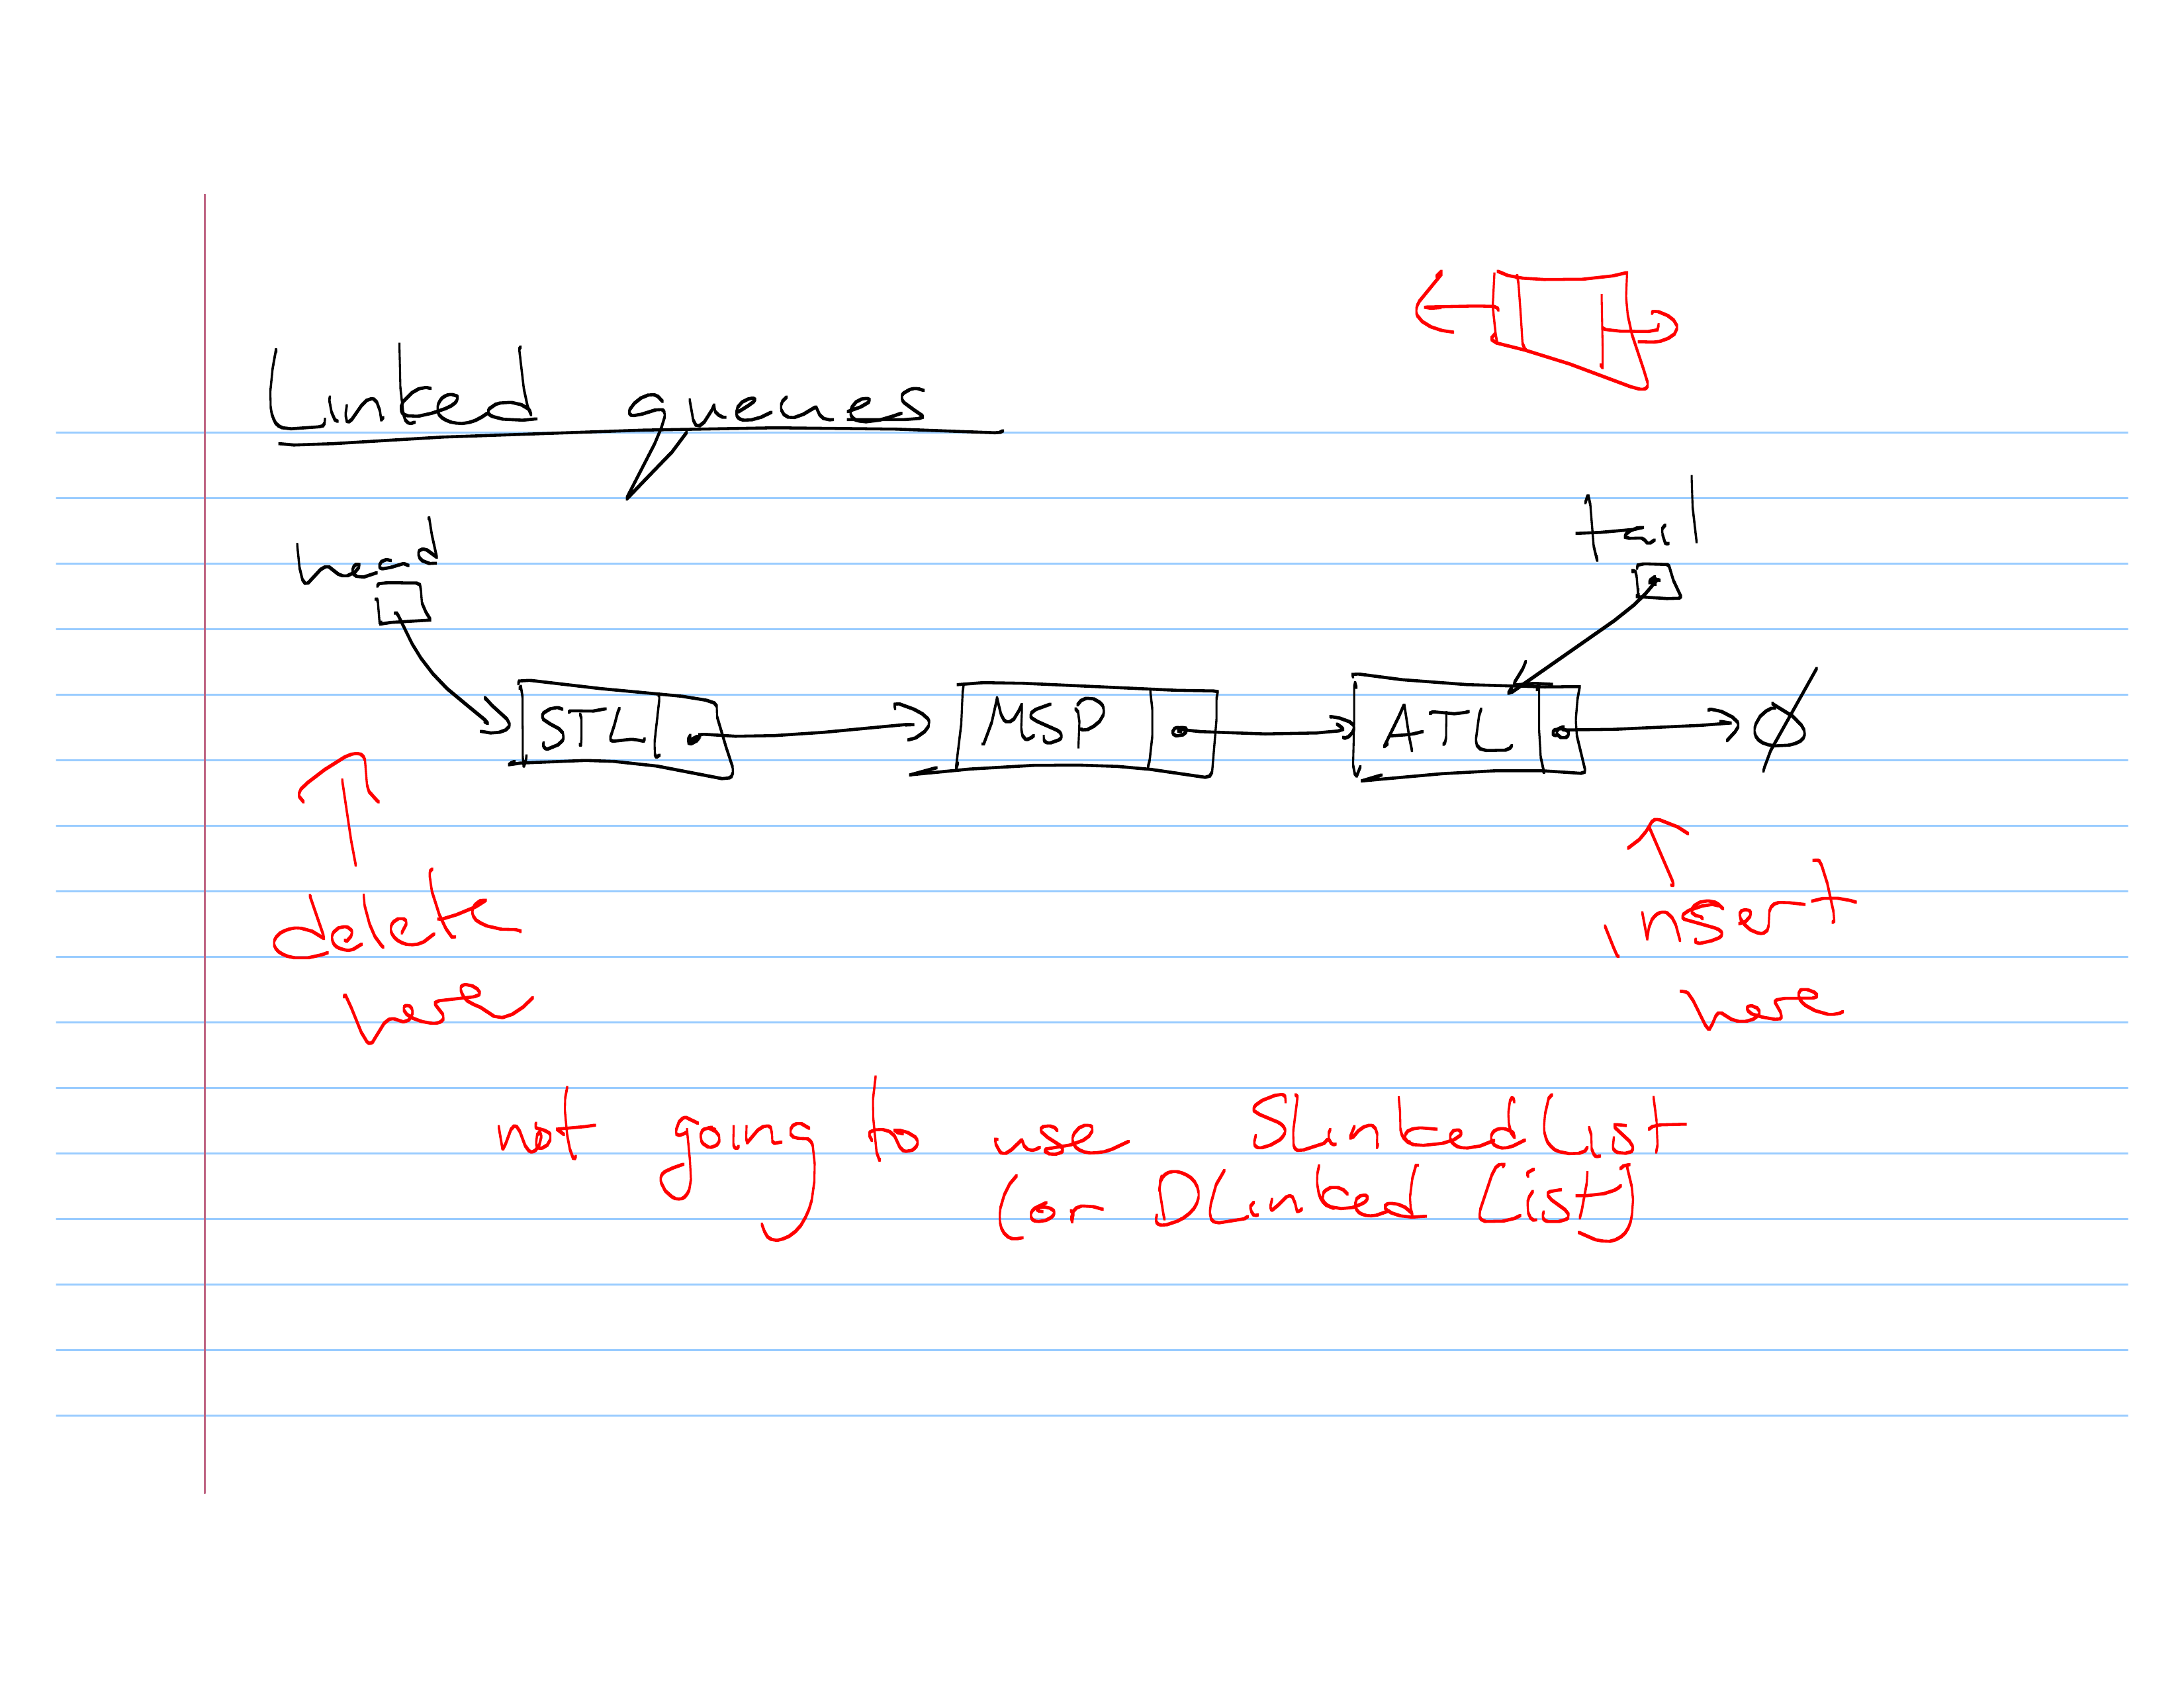 Linked queues
head
tail
STL
MSP
ATL
∅
delete
here
insert
here
not going to use SLinkedList
(or DLinked List)